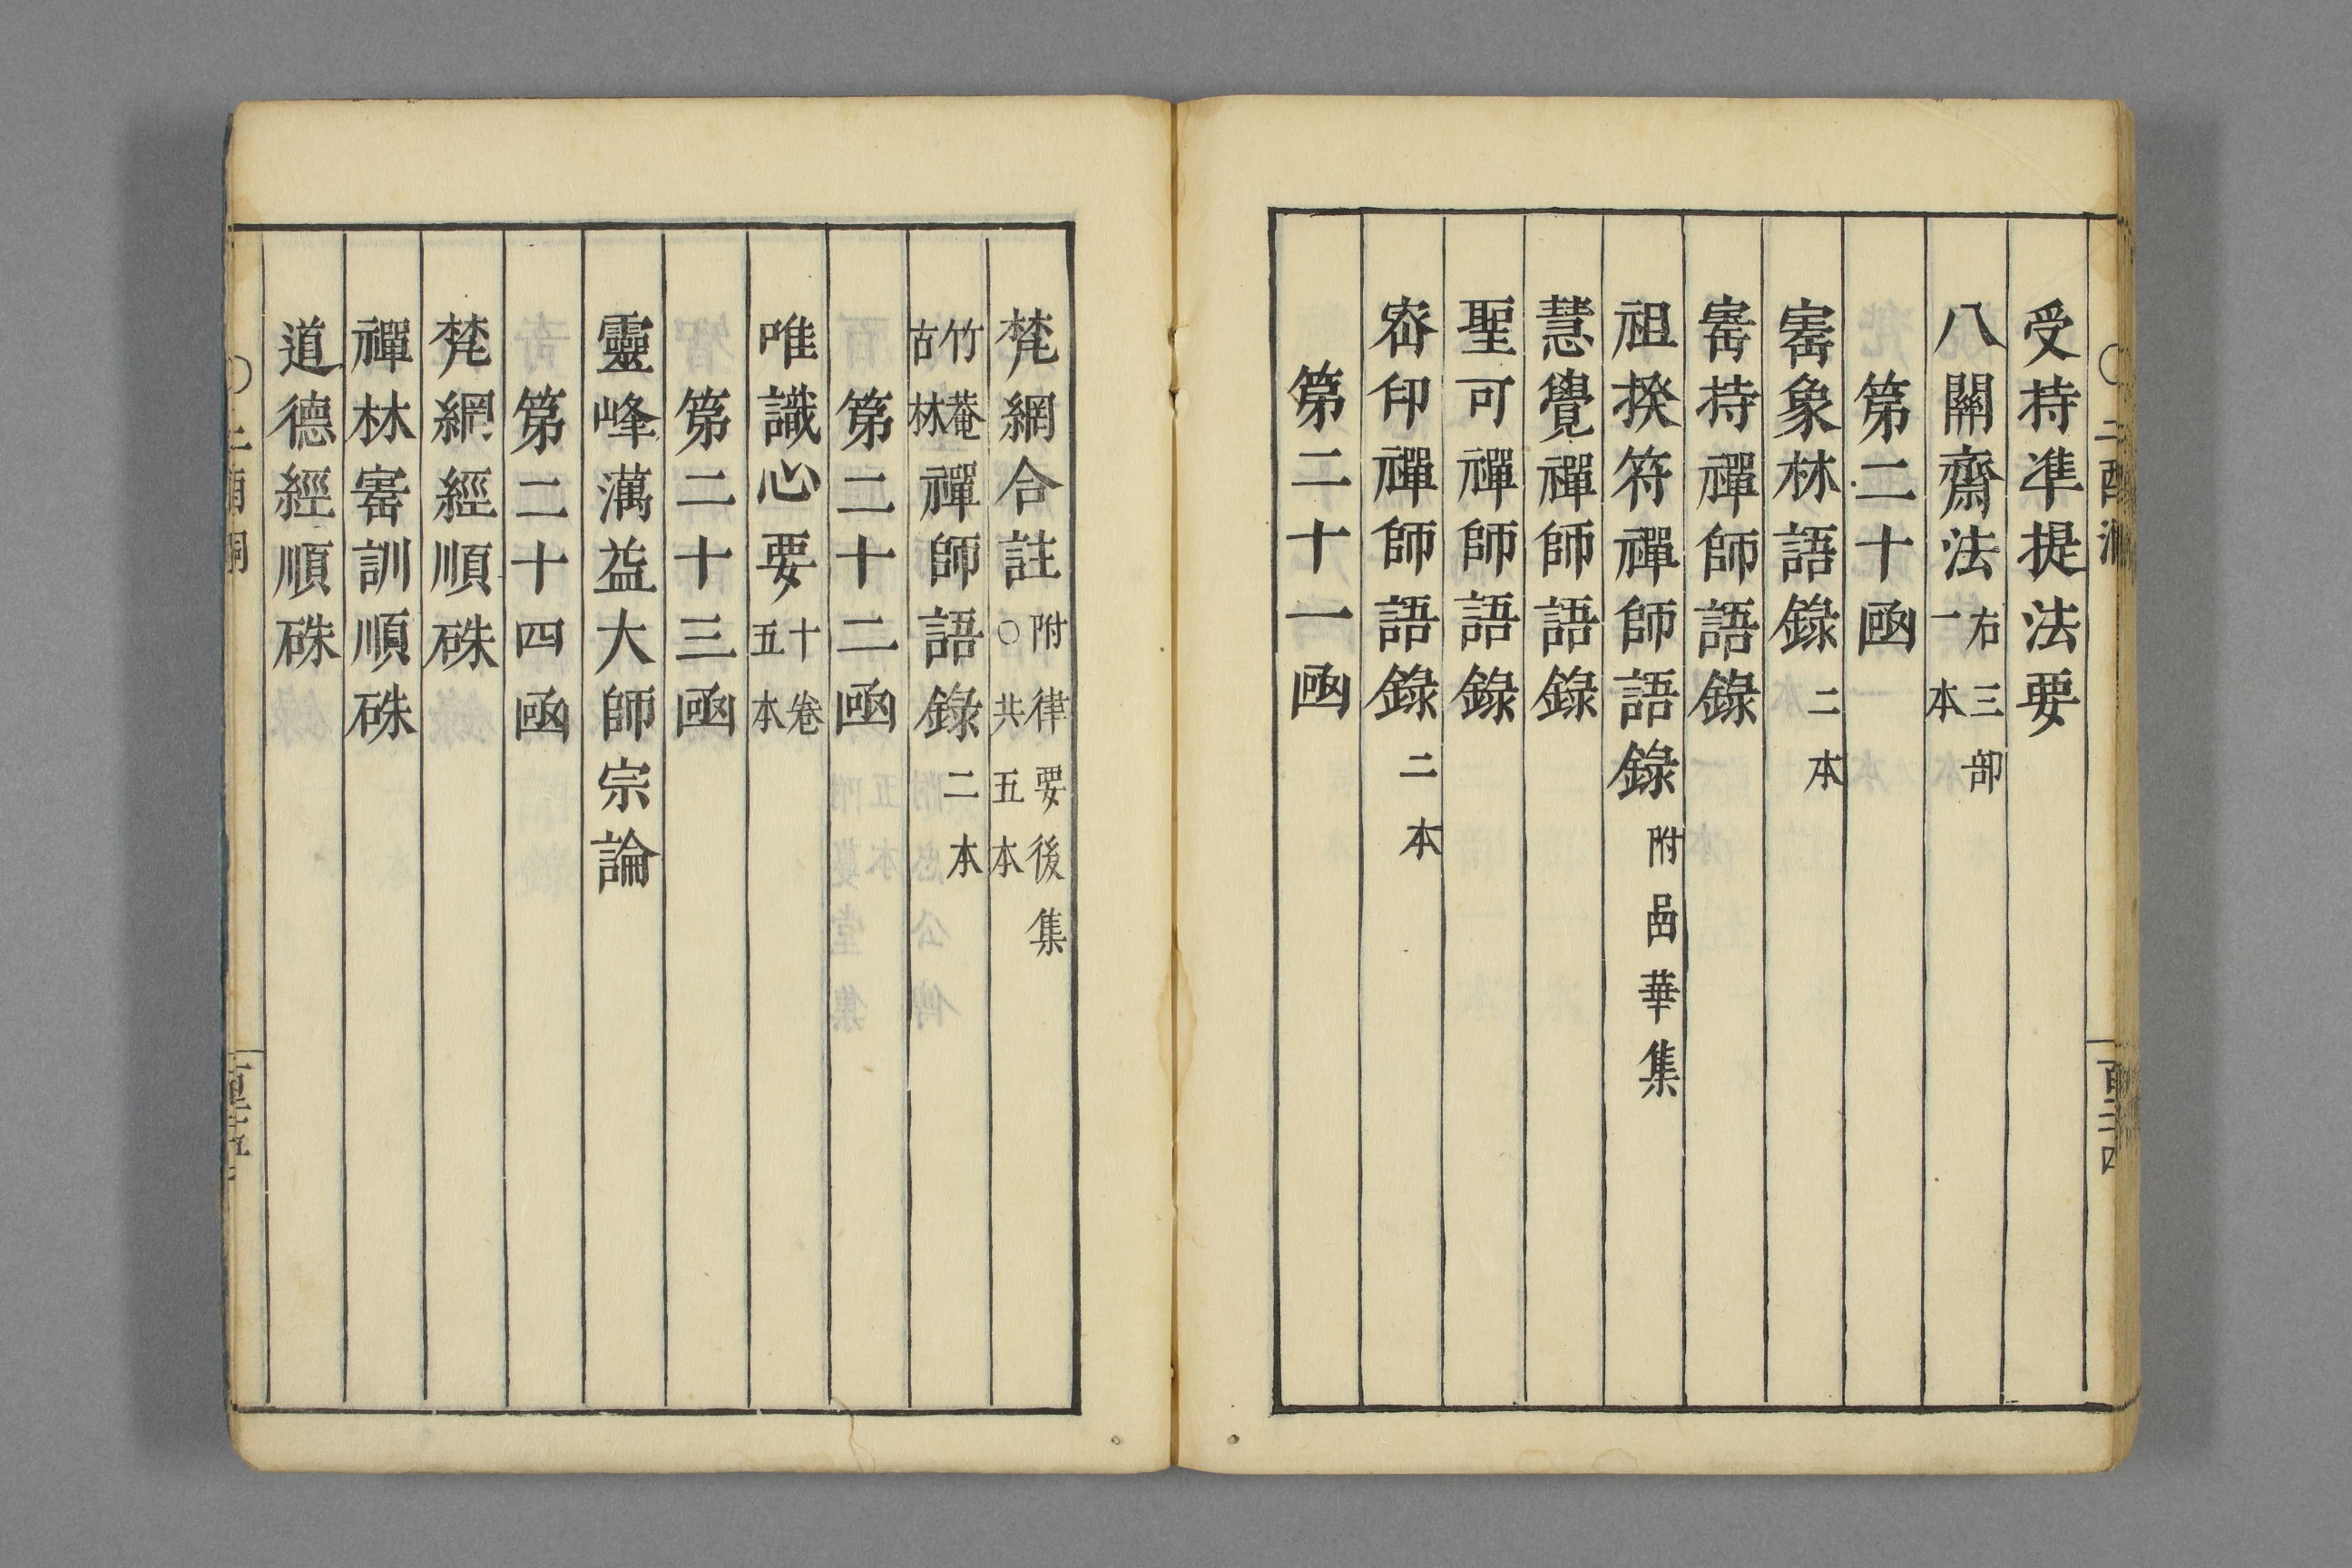 受持凖提法要
八關齋法 右三部一本
第二十凾
寚象林語錄 二本
寚持禪師語錄
祖揆符禪師語錄 附嵒華集
慧覺禪師語錄
聖可禪師語錄
峦印禪師語錄 二本
第二十一凾
梵網合註 附律要後集○共五本
竹菴古林禪師語錄 二本
第二十二凾
唯識心要 十卷五本
第二十三凾
靈峰蕅益大師宗論
第二十四凾
梵網經順硃
禪林寚訓順硃
道德經順硃